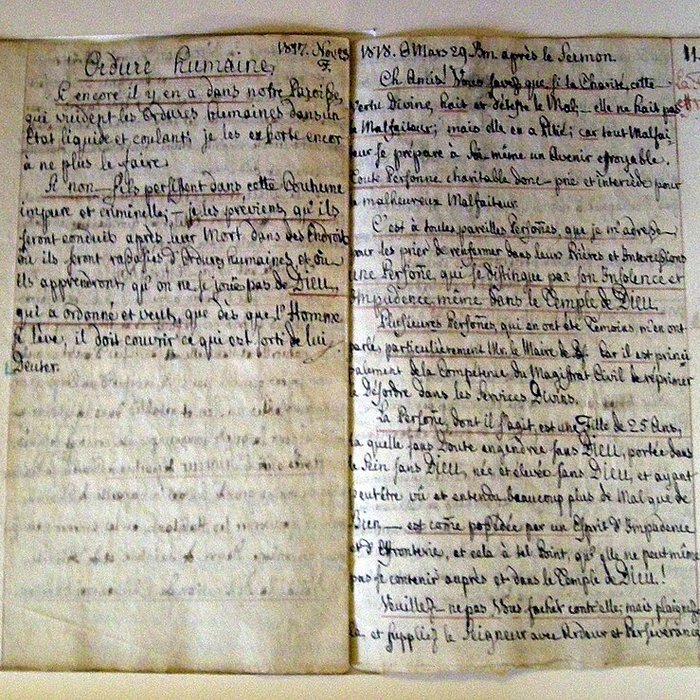 1817. Nov 23
Ordure humaine.
S'il encore il y en a dans notre Paroisse,
qui vuident les Ordures humaines dans un
Etat liquide et coulant; je les exhorte encor
à ne plus le faire.
Si non — s'ils persistent dans cette Coutume
impure et criminelle; — je les préviens, qu'ils
seront conduit après leur Mort dans des Endroits
où ils seront rassasiés d'Ordures humaines et où
ils apprendront, qu'on ne se joüe pas de DIEU,
qui a ordonné et veut, que dès que l'Homme
se lève, il doit couvrir ce qui est sorti de lui.
Deuter.
1818. Mars 29. après le Sermon. 11.
Ch. Amis! Vous savez que si la Charité, cette
Vertu Divine, hait et déteste le Mal; — elle ne hait pas
le Malfaiteur; mais elle en a Pitié; car tout Malfai-
teur se prépare à Soi même un Avenir effroyable.
Toute Personne charitable donc — prie et intercède pour
le malheureux Malfaiteur.
C'est à toutes pareilles Persoñes, que je m'adresse
pour les prier de renfermer dans leurs Prières et Intercessions
une Persoñe, qui se distingue par son Insolence et
Impudence, même dans le Temple de DIEU.
Plusieures Persoñes, qui en ont été Témoins m'en ont
parlé, particulièrement Mr. le Maire de Car il est princi-
palement de la Competence du Magistrat Civil de réprimer
le Désordre dans les Services Divins.
La Persoñe, dont il s'agit, est une Fille de 25 Ans,
la quelle sans Doute engendrée sans DIEU, portée dans
le Sein sans DIEU, née et élevée sans DIEU, et ayant
peutêtre vû et entendu beaucoup plus de Mal que de
Bien, — est come possédée par un Esprit d'Impudence
et d'Effronterie, et cela à tel Point, qu'elle ne peut même
pas se contenir auprès et dans le Temple de DIEU!
Veuillez — ne pas Vous facher contr'elle; mais plaignez
la, et suppliez le Seigneur avec Ardeur et Perséverance